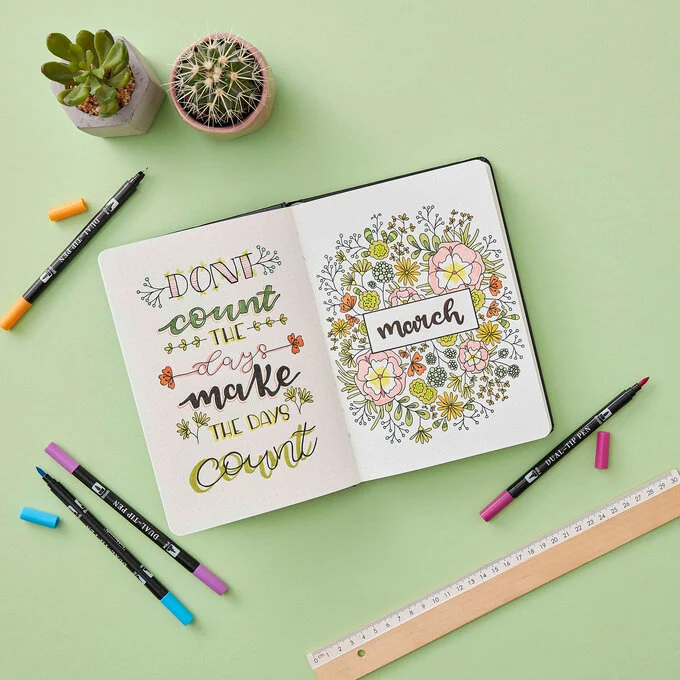 DON'T
count
THE
days
make
THE DAYS
Count
march
DUAL-TIP PEN
DUAL-TIP PEN
DUAL-TIP PEN
0 1 2 3 4 5 6 7 8 9 10 11 12 13 14 15 16 17 18 19 20 21 22 23 24 25 26 27 28 29 30